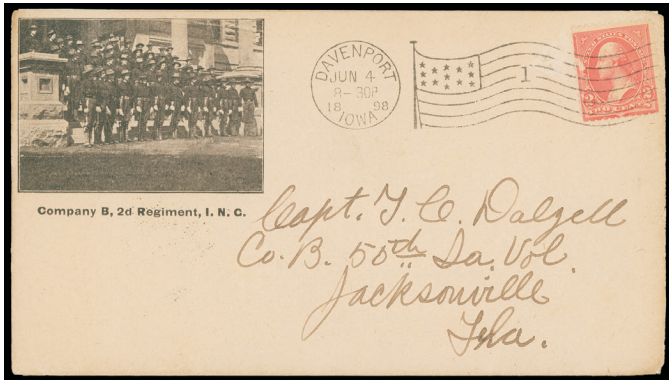 Company B, 2d Regiment, I. N. G.
DAVENPORT
JUN 4
8-30P
18 98
IOWA
1
UNITED STATES POSTAGE
2 2
TWO CENTS
Capt. T. C. Dalzell
Co. B. 50th Ia. Vol.
Jacksonville
Fla.